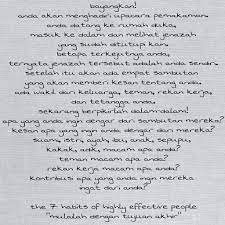 bayangkan!
anda akan menghadiri upacara pemakaman.
anda datang ke rumah duka,
masuk ke dalam dan melihat jenazah
yang sudah ditutup kain.
tetapi terkejutnya anda,
ternyata jenazah tersebut adalah anda sendiri.
setelah itu akan ada empat sambutan
yang akan memberi kesan tentang anda.
ada wakil dari keluarga, teman, rekan kerja,
dan tetangga anda.
sekarang berpikirlah dalam-dalam!
apa yang anda ingin dengar dari sambutan mereka?
kesan apa yang ingin anda dengar dari mereka?
suami, istri, ayah, ibu, anak, sepupu,
kakak, adik, macam apa anda?
teman macam apa anda?
rekan kerja macam apa anda?
kontribusi apa yang anda ingin mereka
ingat dari anda?
the 7 habits of highly effective people
"mulailah dengan tujuan akhir"